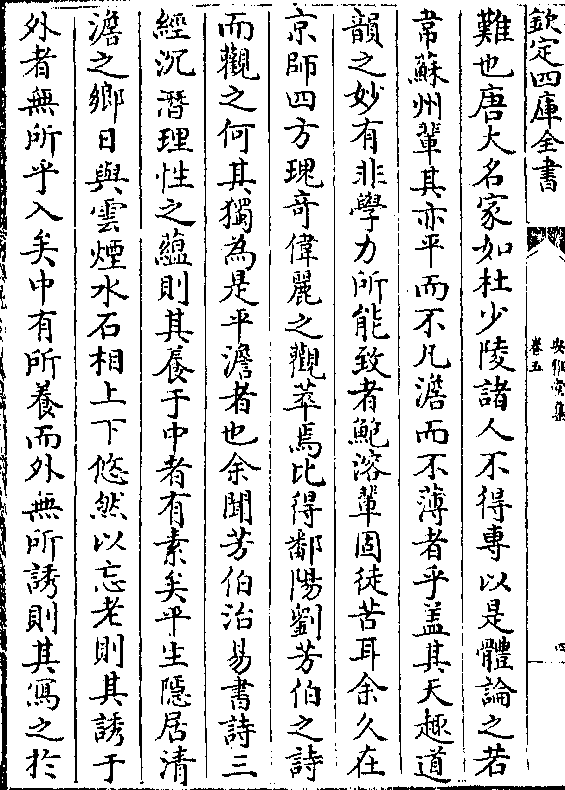 欽定四庫全書
卷五
四
難也唐大名家如杜少陵諸人不得專以是體論之若
韋蘇州輩其亦平而不凡澹而不薄者乎盖其天趣道
韻之妙有非學力所能致者鮑溶輩固徒苦耳余久在
京師四方瑰竒偉麗之觀萃焉比得鄱陽劉芳伯之詩
而觀之何其獨為是平澹者也余聞芳伯治易書詩三
經沉潛理性之蘊則其養于中者有素矣平生隠居清
澹之鄉日與雲煙水石相上下悠然以忘老則其誘于
外者無所乎入矣中有所養而外無所誘則其寫之於